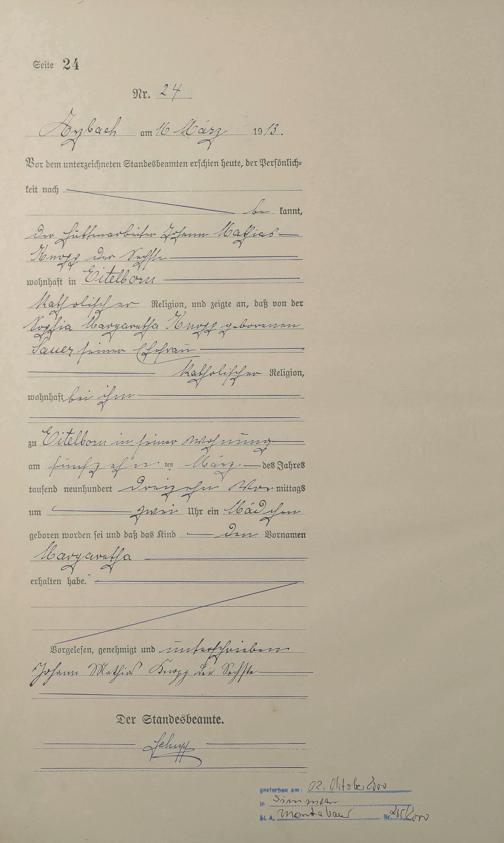 Seite 24
Nr. 24
Arzbach am 16 März 1913.
Vor dem unterzeichneten Standesbeamten erschien heute, der Persönlich-
keit nach
be kannt,
der Hüttenarbeiter Johann Mathias
Knopp der Sechste
wohnhaft in Eitelborn
katholischer Religion, und zeigte an, daß von der
Sophia Margaretha Knopp geborenen
Sauer seiner Ehefrau
katholischer Religion,
wohnhaft bei ihm
zu Eitelborn in seiner Wohnung
am fünfzehn ten März des Jahres
tausend neunhundert dreizehn Vor mittags
um zwei Uhr ein Mädchen
geboren worden sei und daß das Kind den Vornamen
Margaretha
erhalten habe.
Vorgelesen, genehmigt und unterschrieben
Johann Mathias Knopp der Sechste
Der Standesbeamte.
gestorben am: 02. Oktober 2000
in Simmern
St. A. Montabaur Nr.